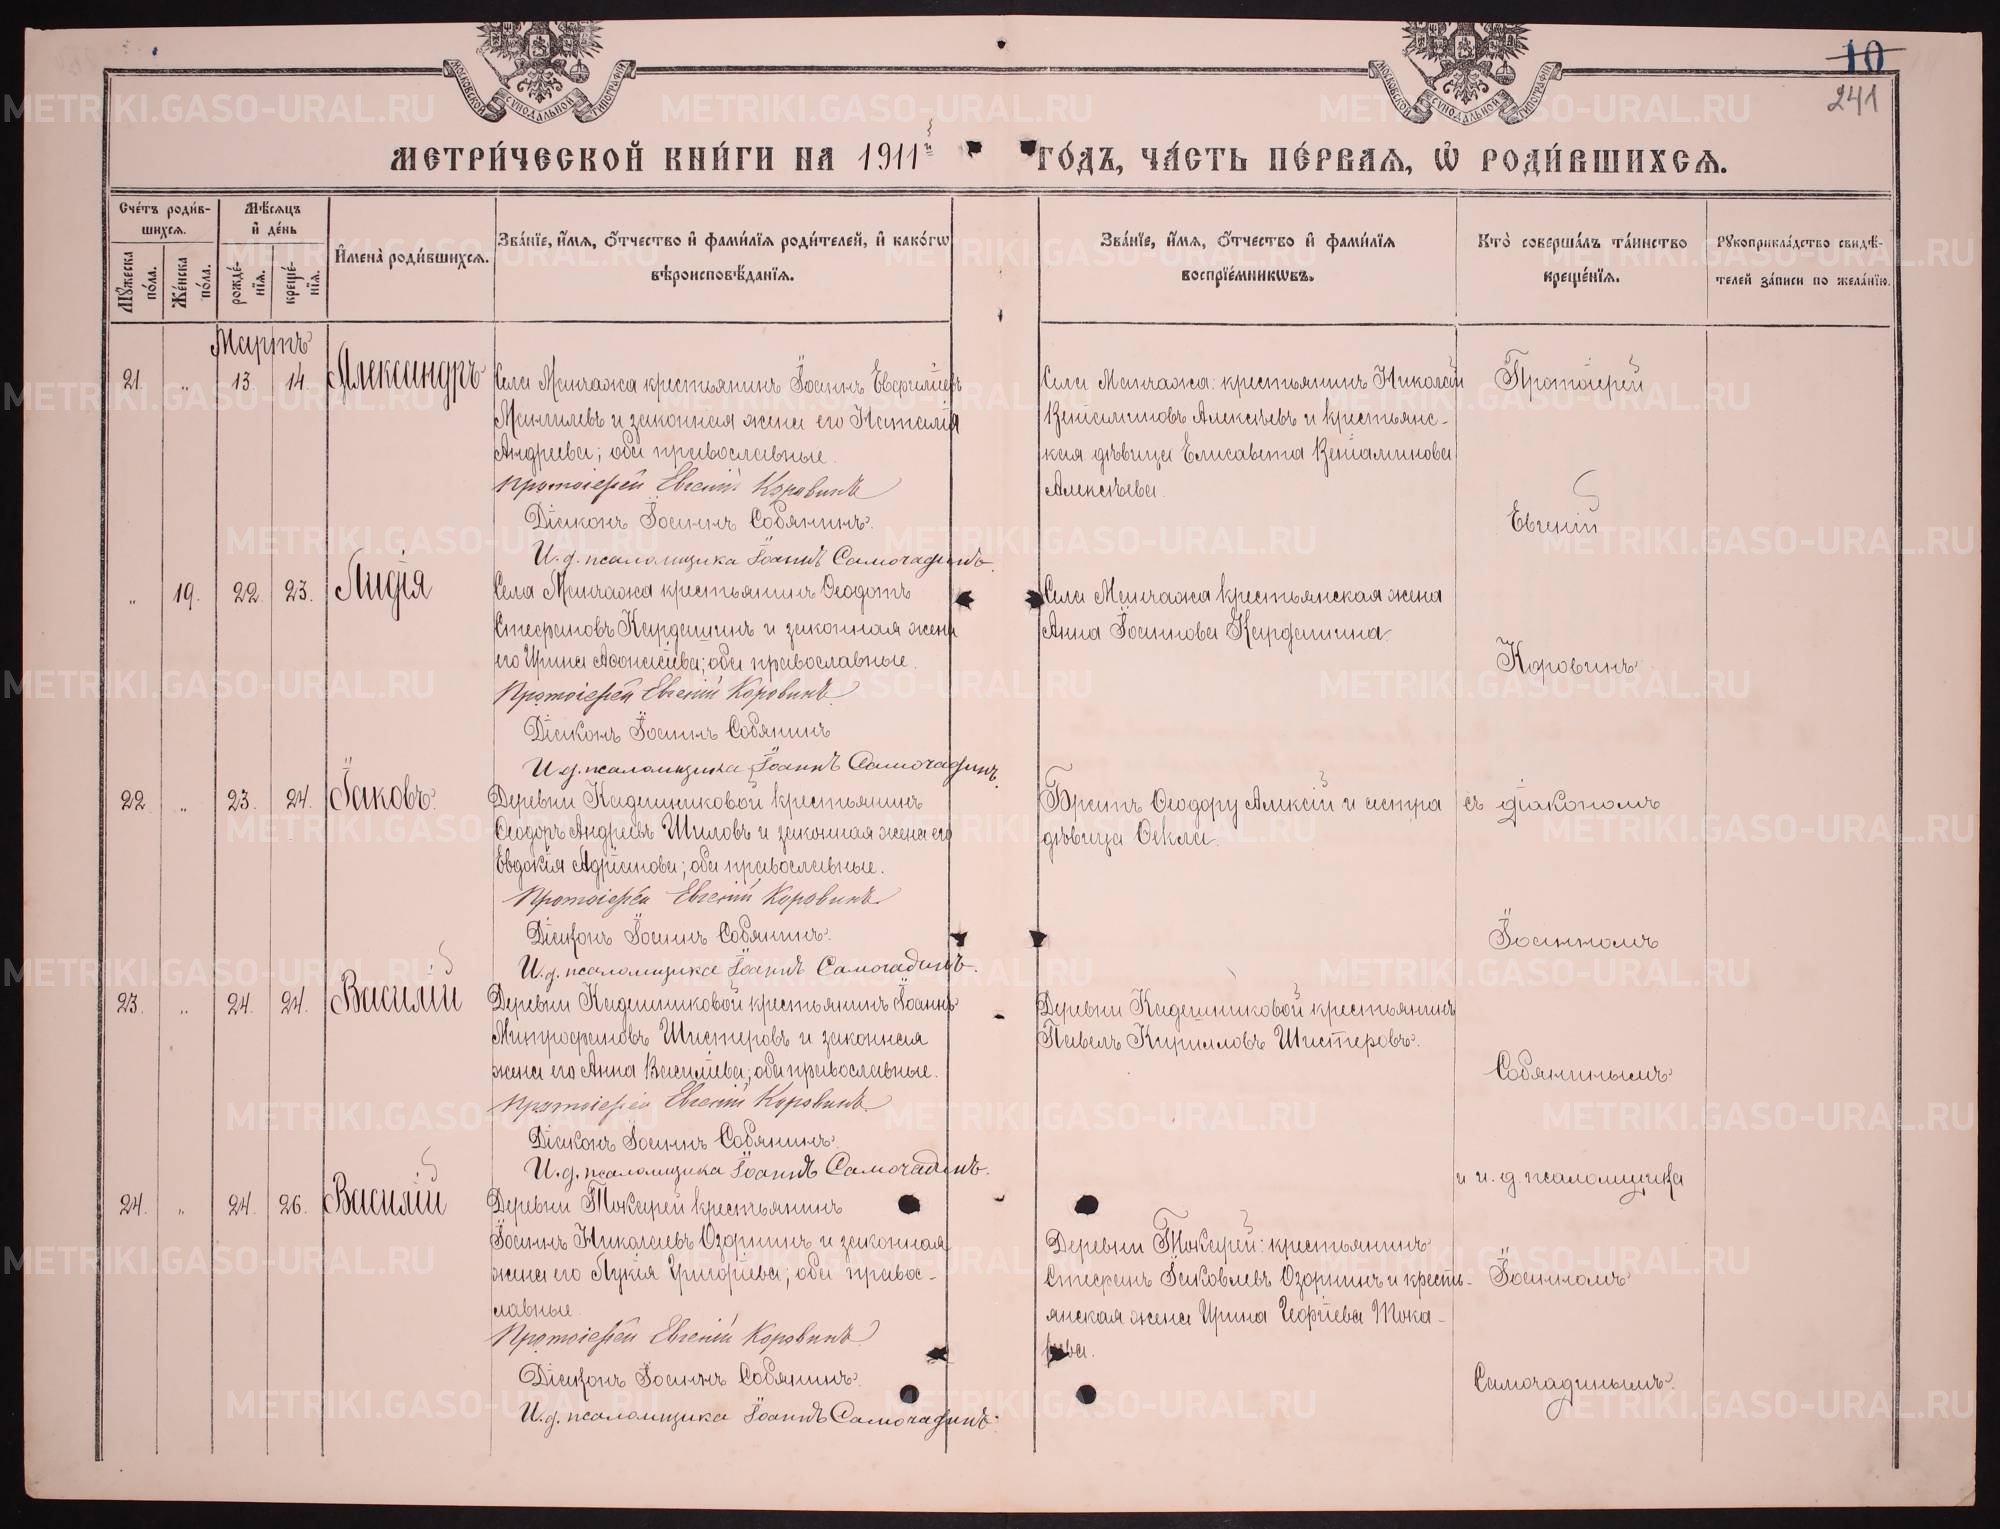 МОСКОВСКОЙ СѴНОДАЛЬНОЙ ТИПОГРАФІИ
МОСКОВСКОЙ СѴНОДАЛЬНОЙ ТИПОГРАФІИ
10
241
МЕТРИ́ЧЕСКОЙ КНИ́ГИ НА 1911й
ГО́ДЪ, ЧА́СТЬ ПЕ́РВАѦ, Ѡ҆ РОДИ́ВШИХСѦ.
Сче́тъ роди́в-
шихсѧ.
Мꙋжеска по́ла.
Же́нска по́ла.
Мѣ́сѧцъ
и҆ де́нь
рожде́-
нїѧ.
креще́-
нїѧ.
И҆мена̀ роди́вшихсѧ.
Зва́нїе, и҆́мѧ, ѻ҆́тчество и҆ фами́лїѧ роди́телей, и҆ како́гѡ
вѣроисповѣ́данїѧ.
Зва́нїе, и҆́мѧ, ѻ҆́тчество и҆ фами́лїѧ
воспрїе́мникѡвъ.
Кто̀ соверша́лъ та́инство
креще́нїѧ.
Рꙋкоприкла́дство свидѣ́-
телей за́писи по жела́нїю.
Мартъ
21. „ 13. 14. Александръ
Села Манчажа крестьянинъ Іоаннъ Евфиміевъ
Мангилевъ и законная жена его Наталія
Андреева; оба православные.
Протоіерей Евгеній Коровинъ
Діаконъ Іоаннъ Собянинъ.
И. д. псаломщика Іоаннъ Самочадинъ.
Села Манчажа: крестьянинъ Николай
Веніаминовъ Алексѣевъ и крестьянс-
кая дѣвица Елисавета Веніаминова
Алексѣева.
Протоіерей
Евгеній
Коровинъ
„ 19. 22. 23. Лидія
Села Манчажа крестьянинъ Ѳеодотъ
Стефановъ Кардашинъ и законная жена
его Ирина Аѳонасіева; оба православные.
Протоіерей Евгеній Коровинъ.
Діаконъ Іоаннъ Собянинъ
И. д. псаломщика Іоаннъ Самочадинъ.
Села Манчажа крестьянская жена
Анна Іоаннова Кардашина.
22 „ 23. 24. Іаковъ.
Деревни Кадешниковой крестьянинъ
Ѳеодоръ Андреевъ Шиловъ и законная жена его
Евдокія Адріанова; оба православные.
Протоіерей Евгеній Коровинъ.
Діаконъ Іоаннъ Собянинъ.
И. д. псаломщика Іоаннъ Самочадинъ.
Братъ Ѳеодору Алексій и сестра
дѣвица Ѳекла.
съ діакономъ
Іоанномъ
Собянинымъ
23. „ 24. 24. Василій
Деревни Кадешниковой крестьянинъ Іоаннъ
Митрофановъ Шистеровъ и законная
жена его Анна Василіева; оба православные.
Протоіерей Евгеній Коровинъ.
Діаконъ Іоаннъ Собянинъ.
И. д. псаломщика Іоаннъ Самочадинъ.
Деревни Кадешниковой крестьянинъ
Павелъ Кирилловъ Шистеровъ.
и и. д. псаломщика
24. „ 24. 26. Василій
Деревни Токарей крестьянинъ
Іоаннъ Николаевъ Озорнинъ и законная
жена его Лукія Григоріева; оба правос-
лавные.
Протоіерей Евгеній Коровинъ.
Діаконъ Іоаннъ Собянинъ.
И. д. псаломщика Іоаннъ Самочадинъ.
Деревни Токарей: крестьянинъ
Стефанъ Іаковлевъ Озорнинъ и кресть-
янская жена Ирина Георгіева Тока-
рева.
Іоанномъ
Самочадинымъ.
METRIKI.GASO-URAL.RU